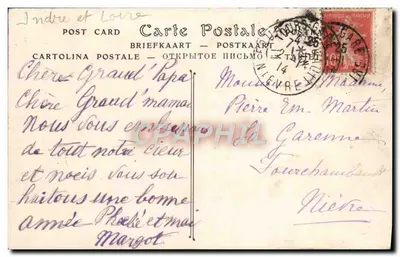 Indre et Loire
POST CARD
Carte Postale
BRIEFKAART — POSTKAART
CARTOLINA POSTALE — ОТКРЫТОЕ ПИСЬМО
Chère Grand'Papa
Chère Grand'maman
Nous vous embrassons
de tout notre cœur
et nous vous sou
haitons une bonne
année Phoebé et moi
Margot
Monsieur Madame
Pierre Em. Martin
La Garenne
Fourchambault
Nièvre
DELCAMPE